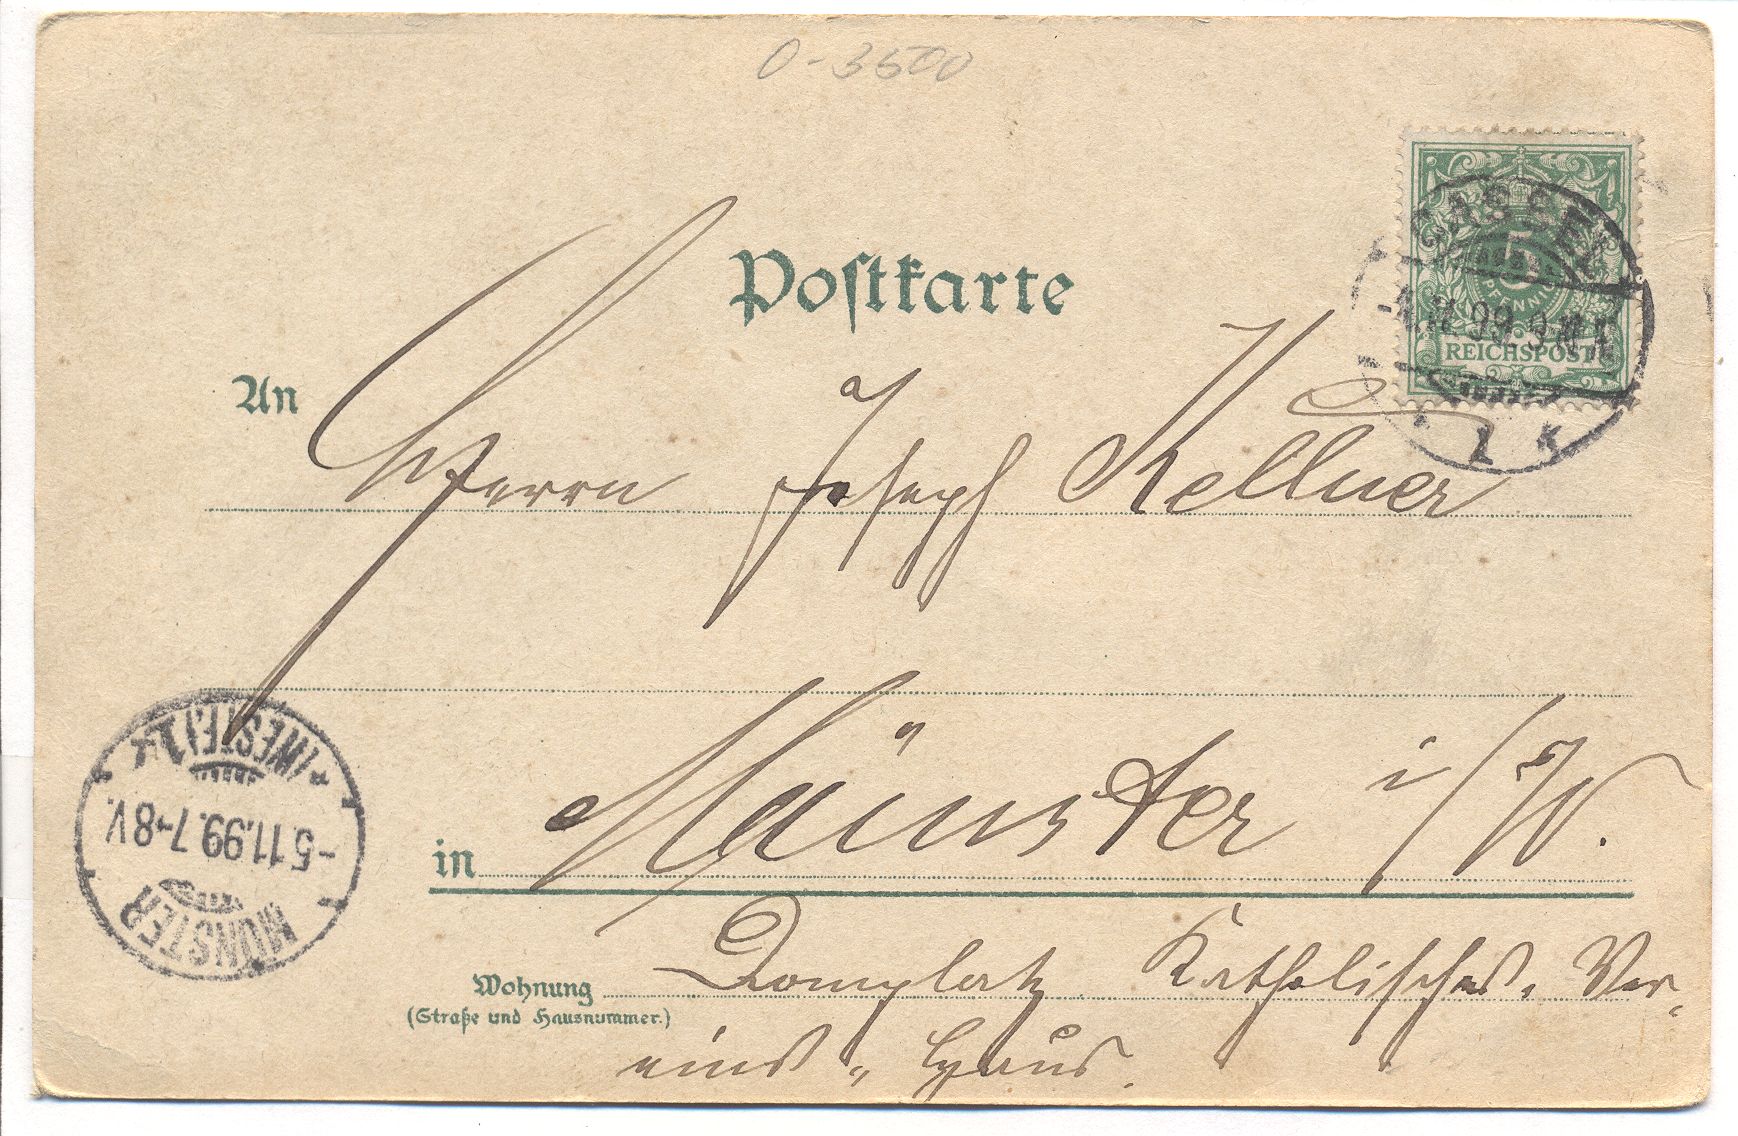 0-3500
Postkarte
CASSEL
5
PFENNIG
-4.11.99.9
REICHSPOST
1 K
An
Herrn Joseph Kellner
in Münster i/W.
Wohnung
(Straße und Hausnummer.)
Domplatz Katholisches. Ver-
eins„ Haus.
MÜNSTER
-5.11.99.7-8V.
(WESTF.)1*